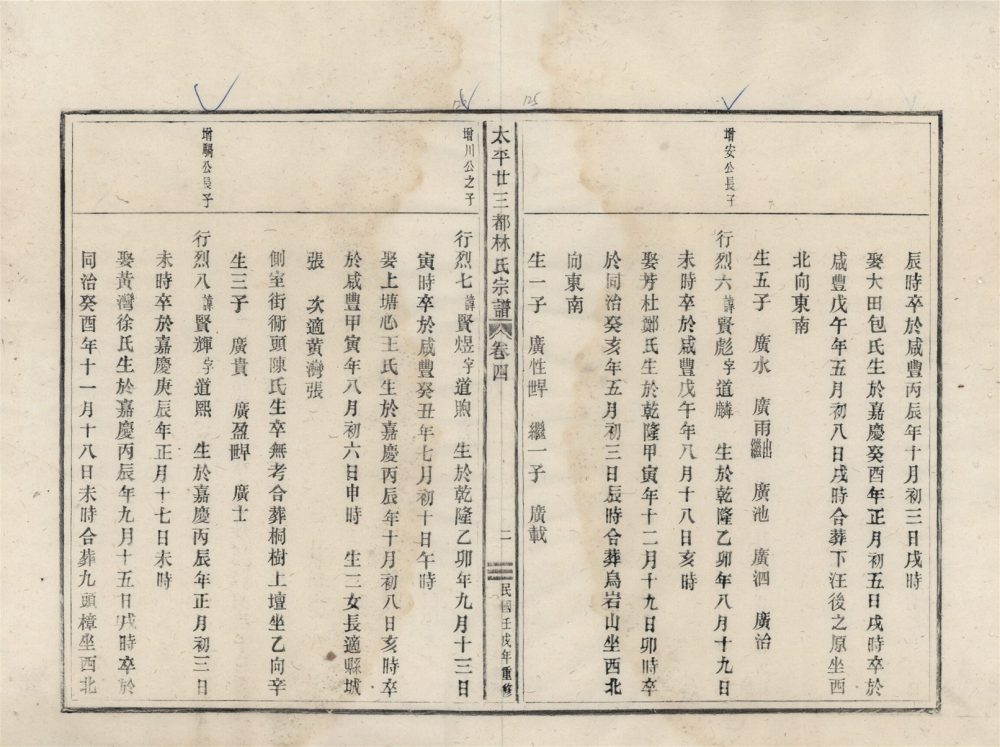 辰時卒於咸豐丙辰年十月初三日戌時
娶大田包氏生於嘉慶癸酉年正月初五日戌時卒於
咸豐戊午年五月初八日戌時合葬下汪後之原坐西
北向東南
生五子 廣水 廣雨出繼 廣池 廣泗 廣治
增安公長子
行烈六諱賢彪字道麟 生於乾隆乙卯年八月十九日
未時卒於咸豐戊午年八月十八日亥時
娶芳杜鄭氏生於乾隆甲寅年十二月十九日卯時卒
於同治癸亥年五月初三日辰時合葬烏岩山坐西北
向東南
生一子 廣性 繼一子 廣載
太平廿三都林氏宗譜 卷四 二 民國壬戌年重修
125
增川公之子
行烈七諱賢煜字道煦 生於乾隆乙卯年九月十三日
寅時卒於咸豐癸丑年七月初十日午時
娶上塘心王氏生於嘉慶丙辰年十月初八日亥時卒
於咸豐甲寅年八月初六日申時 生二女長適縣城
張 次適黃灣張
側室街衕頭陳氏生卒無考合葬桐樹上壇坐乙向辛
生三子 廣貴 廣盈 廣士
增驥公長子
行烈八諱賢輝字道熙 生於嘉慶丙辰年正月初三日
未時卒於嘉慶庚辰年正月十七日未時
娶黃灣徐氏生於嘉慶丙辰年九月十五日戌時卒於
同治癸酉年十一月十八日未時合葬九頭樟坐西北